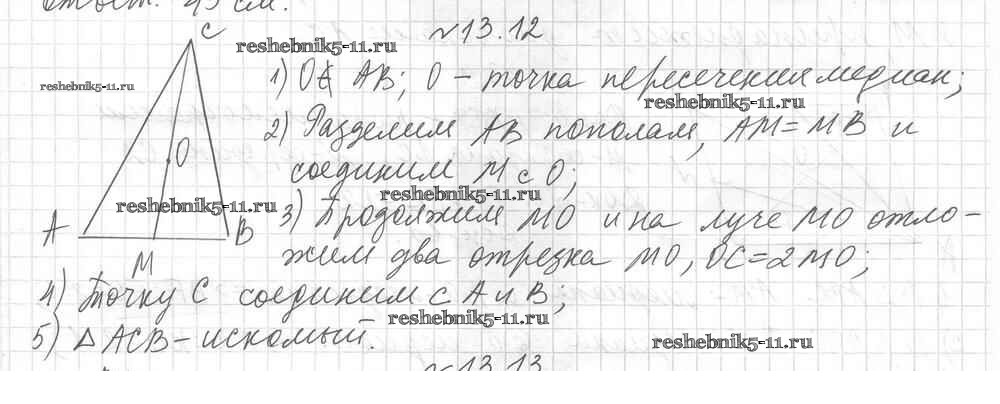 Ответ: 45 см.
№13.12
C
reshebnik5-11.ru
1) O∉ AB; O – точка пересечения медиан;
reshebnik5-11.ru
reshebnik5-11.ru
2) Разделим AB пополам, AM=MB и
O
соединим M с O;
reshebnik5-11.ru
reshebnik5-11.ru
A
B
M
3) Продолжим MO и на луче MO отло-
жим два отрезка MO, OC=2MO;
4) Точку C соединим с A и B;
reshebnik5-11.ru
5) △ ACB – искомый.
reshebnik5-11.ru
№13.13